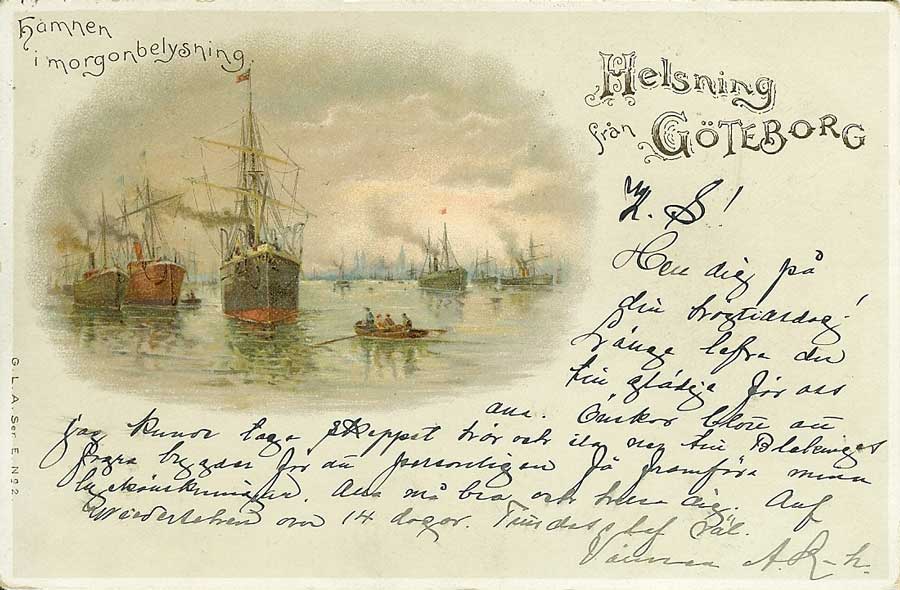 Hamnen
i morgonbelysning.
Helsning
från GÖTEBORG
K. S!
Hell dig på
din trogtiardag!
Länge lefve du
till glädje för oss
alla. Önskar blott att
jag kunde taga skeppet här och ila ner till Blekinges
fagra bygder för att personligen få framföra mina
lyckönskningar. Alla må bra och helsa dig. Auf
Wiedersehen om 14 dagar. lef väl.
Vännen A. R-h.
G. L. A. Ser. E. No 2